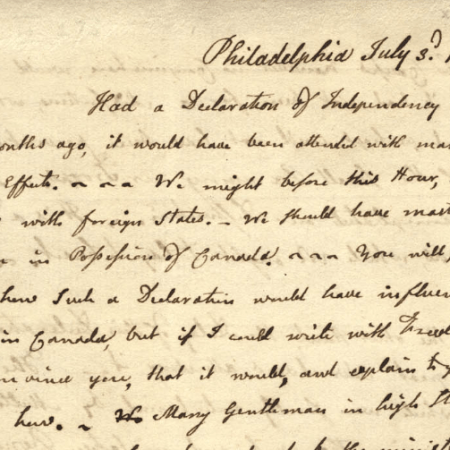 Philadelphia July 3.d
Had a Declaration of Independency
months ago, it would have been attended with
Effects. ~ ~ ~ We might before this Hour,
with foreign States. — We should have
in Possession of Canada. ~ ~ ~ You will
how Such a Declaration would have
in Canada, but if I could write with
you, that it would, and explain to
how. — We Many Gentlemen in high